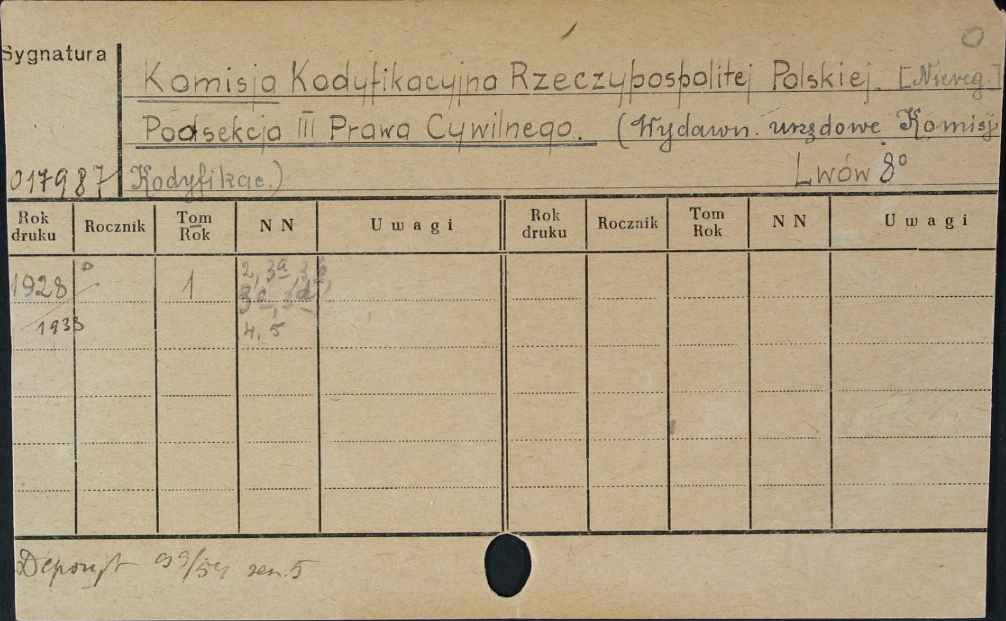 Sygnatura
Komisja Kodyfikacyjna Rzeczypospolitej Polskiej. [Niereg.]
Podsekcja III Prawa Cywilnego. (Wydawn. urzędowe Komisji
017987 Kodyfikac.) Lwów 8°
Rok druku Rocznik Tom Rok NN Uwagi Rok druku Rocznik Tom Rok NN Uwagi
1928 1 2, 3a, 3b,
3c, 3d,
/1933 4, 5
Depozyt 99/54